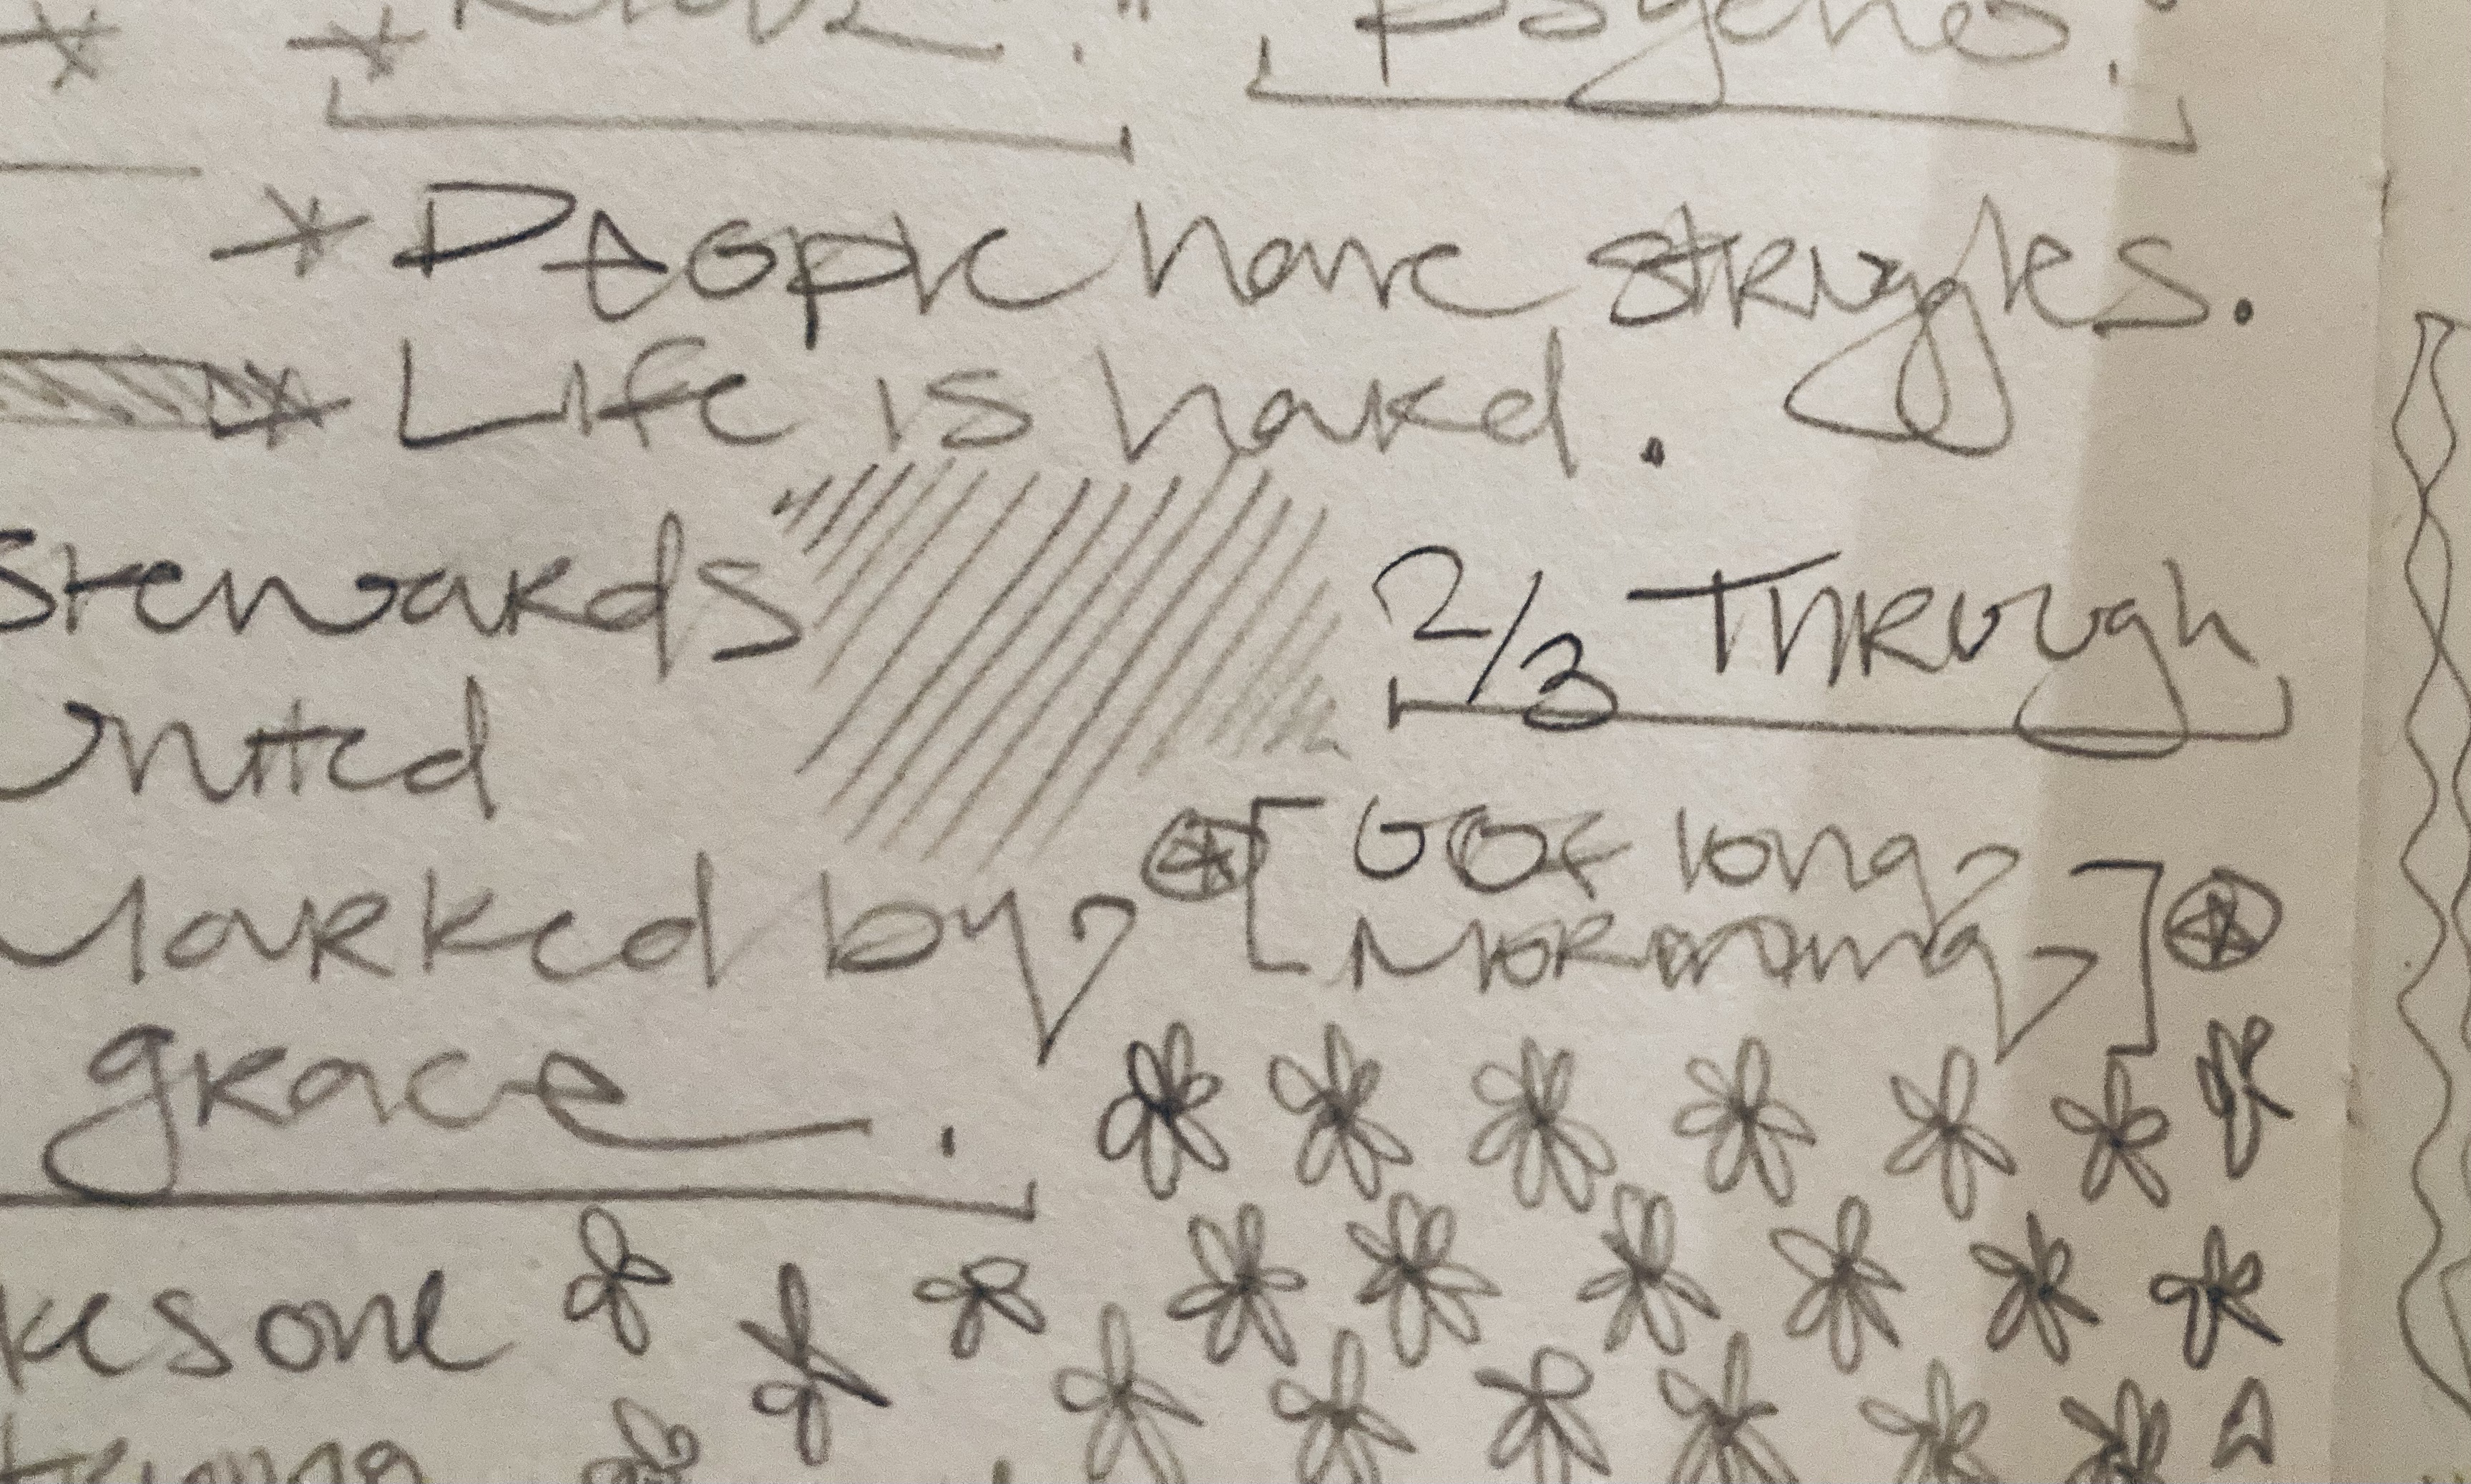 Psycho.
* People have struggles.
* Life is hard.
Stewards
United
Marked by
grace.
2/3 Through
[GOF long
Morning]
one